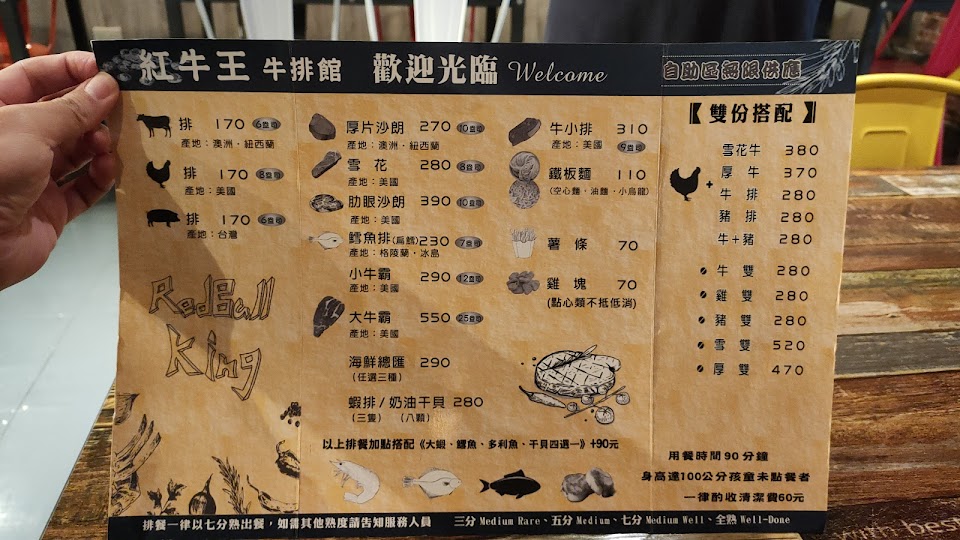 紅牛王 牛排館 歡迎光臨 Welcome
自助區無限供應
排 170 6盎司
產地:澳洲・紐西蘭
排 170 8盎司
產地:美國
排 170 6盎司
產地:台灣
RedBull
King
厚片沙朗 270 10盎司
產地:澳洲・紐西蘭
雪花 280 8盎司
產地:美國
肋眼沙朗 390 10盎司
產地:美國
鱈魚排(扁鱈)230 7盎司
產地:格陵蘭・冰島
小牛霸 290 12盎司
產地:美國
大牛霸 550 25盎司
產地:美國
海鮮總匯 290
(任選三種)
蝦排/奶油干貝 280
(三隻) (八顆)
牛小排 310
產地:美國 9盎司
鐵板麵 110
(空心麵・油麵・小烏龍)
薯條 70
雞塊 70
(點心類不抵低消)
以上排餐加點搭配《大蝦、鱈魚、多利魚、干貝四選一》+90元
【雙份搭配】
+
雪花牛 380
厚牛 370
牛排 280
豬排 280
牛+豬 280
牛雙 280
雞雙 280
豬雙 280
雪雙 520
厚雙 470
用餐時間90分鐘
身高達100公分孩童未點餐者
一律酌收清潔費60元
排餐一律以七分熟出餐,如需其他熟度請告知服務人員 三分 Medium Rare、五分 Medium、七分 Medium Well、全熟 Well-Done
with best